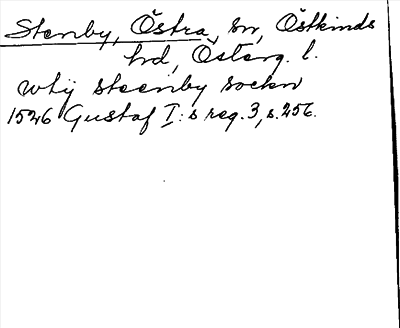 Stenby, Östra, sn, Östkinds
hd, Österg. l.
wtij steenby sockn
1526 Gustaf I:s reg. 3, s. 256.